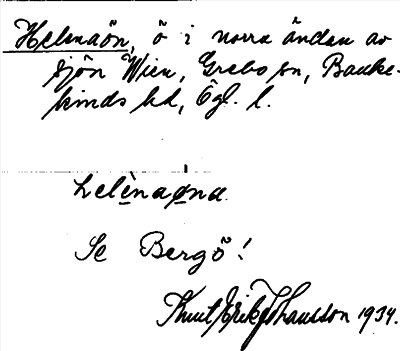 Helenaön, ö i norra ändan av
sjön Wien, Grebo sn, Banke-
kinds hd, Ögl. l.
Lelènaøna
Se Bergö!
Knut Erik Johansson 1934.